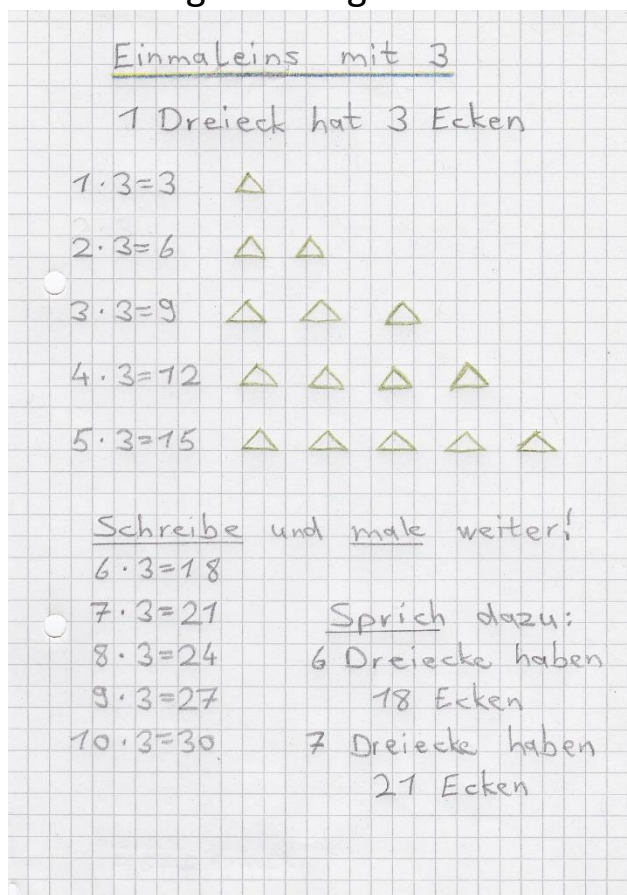 Einmaleins mit 3
1 Dreieck hat 3 Ecken
1·3=3
2·3=6
3·3=9
4·3=12
5·3=15
Schreibe und male weiter!
6·3=18
7·3=21
8·3=24
9·3=27
10·3=30
Sprich dazu:
6 Dreiecke haben
18 Ecken
7 Dreiecke haben
21 Ecken